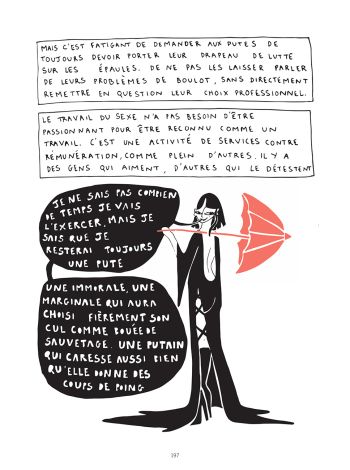 MAIS C'EST FATIGANT DE DEMANDER AUX PUTES DE
TOUJOURS DEVOIR PORTER LEUR DRAPEAU DE LUTTE
SUR LES ÉPAULES. DE NE PAS LES LAISSER PARLER
DE LEURS PROBLÈMES DE BOULOT, SANS DIRECTEMENT
REMETTRE EN QUESTION LEUR CHOIX PROFESSIONNEL.
LE TRAVAIL DU SEXE N'A PAS BESOIN D'ÊTRE
PASSIONNANT POUR ÊTRE RECONNU COMME UN
TRAVAIL. C'EST UNE ACTIVITÉ DE SERVICES CONTRE
RÉMUNÉRATION, COMME PLEIN D'AUTRES. IL Y A
DES GENS QUI AIMENT, D'AUTRES QUI LE DÉTESTENT
JE NE SAIS PAS COMBIEN
DE TEMPS JE VAIS
L'EXERCER, MAIS JE
SAIS QUE JE
RESTERAI TOUJOURS
UNE PUTE
UNE IMMORALE, UNE
MARGINALE QUI AURA
CHOISI FIÈREMENT SON
CUL COMME BOUÉE DE
SAUVETAGE. UNE PUTAIN
QUI CARESSE AUSSI BIEN
QU'ELLE DONNE DES
COUPS DE POING
197